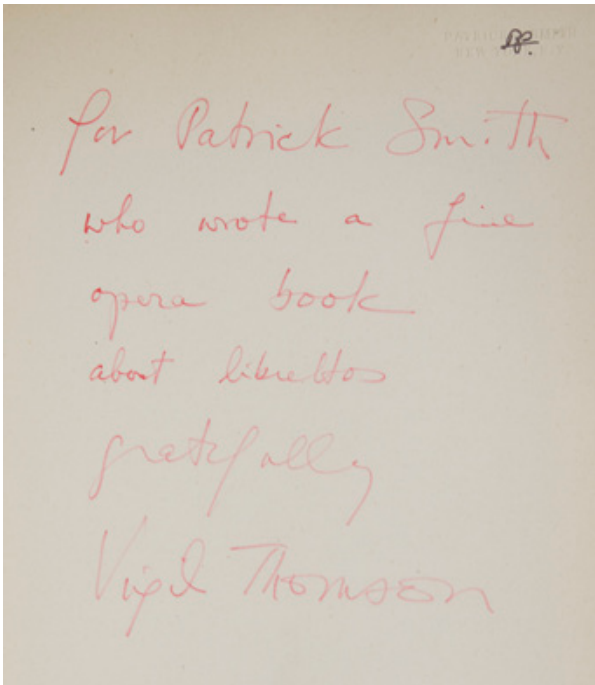 for Patrick Smith
who wrote a fine
opera book
about librettos
gratefully
Virgil Thomson